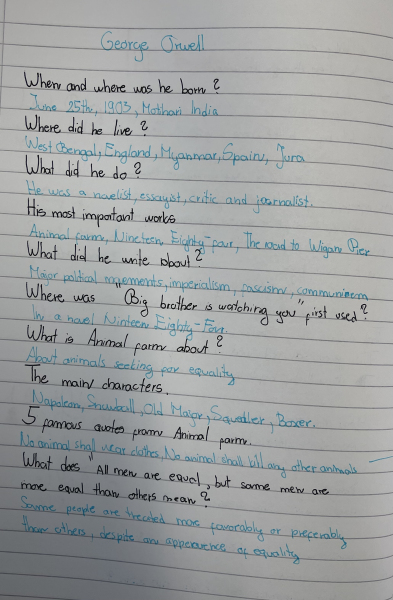 George Orwell
When and where was he born?
June 25th, 1903, Mothari India
Where did he live?
West Bengal, England, Myanmar, Spain, Jura
What did he do?
He was a novelist, essayist, critic and journalist.
His most important works
Animal farm, Nineteen Eighty-four, The road to Wigan Pier
What did he write about?
Major political movements, imperialism, fascism, communism
Where was "Big brother is watching you" first used?
In a novel Ninteen Eighty-Four.
What is Animal farm about?
About animals seeking for equality
The main characters.
Napolean, Snowball, Old Major, Squealer, Boxer.
5 famous quotes from Animal farm.
No animal shall wear clothes, No animal shall kill any other animals
What does "All men are equal, but some men are
more equal than others mean?
Some people are treated more favorably or preferably
than others, despite an appearence of equality